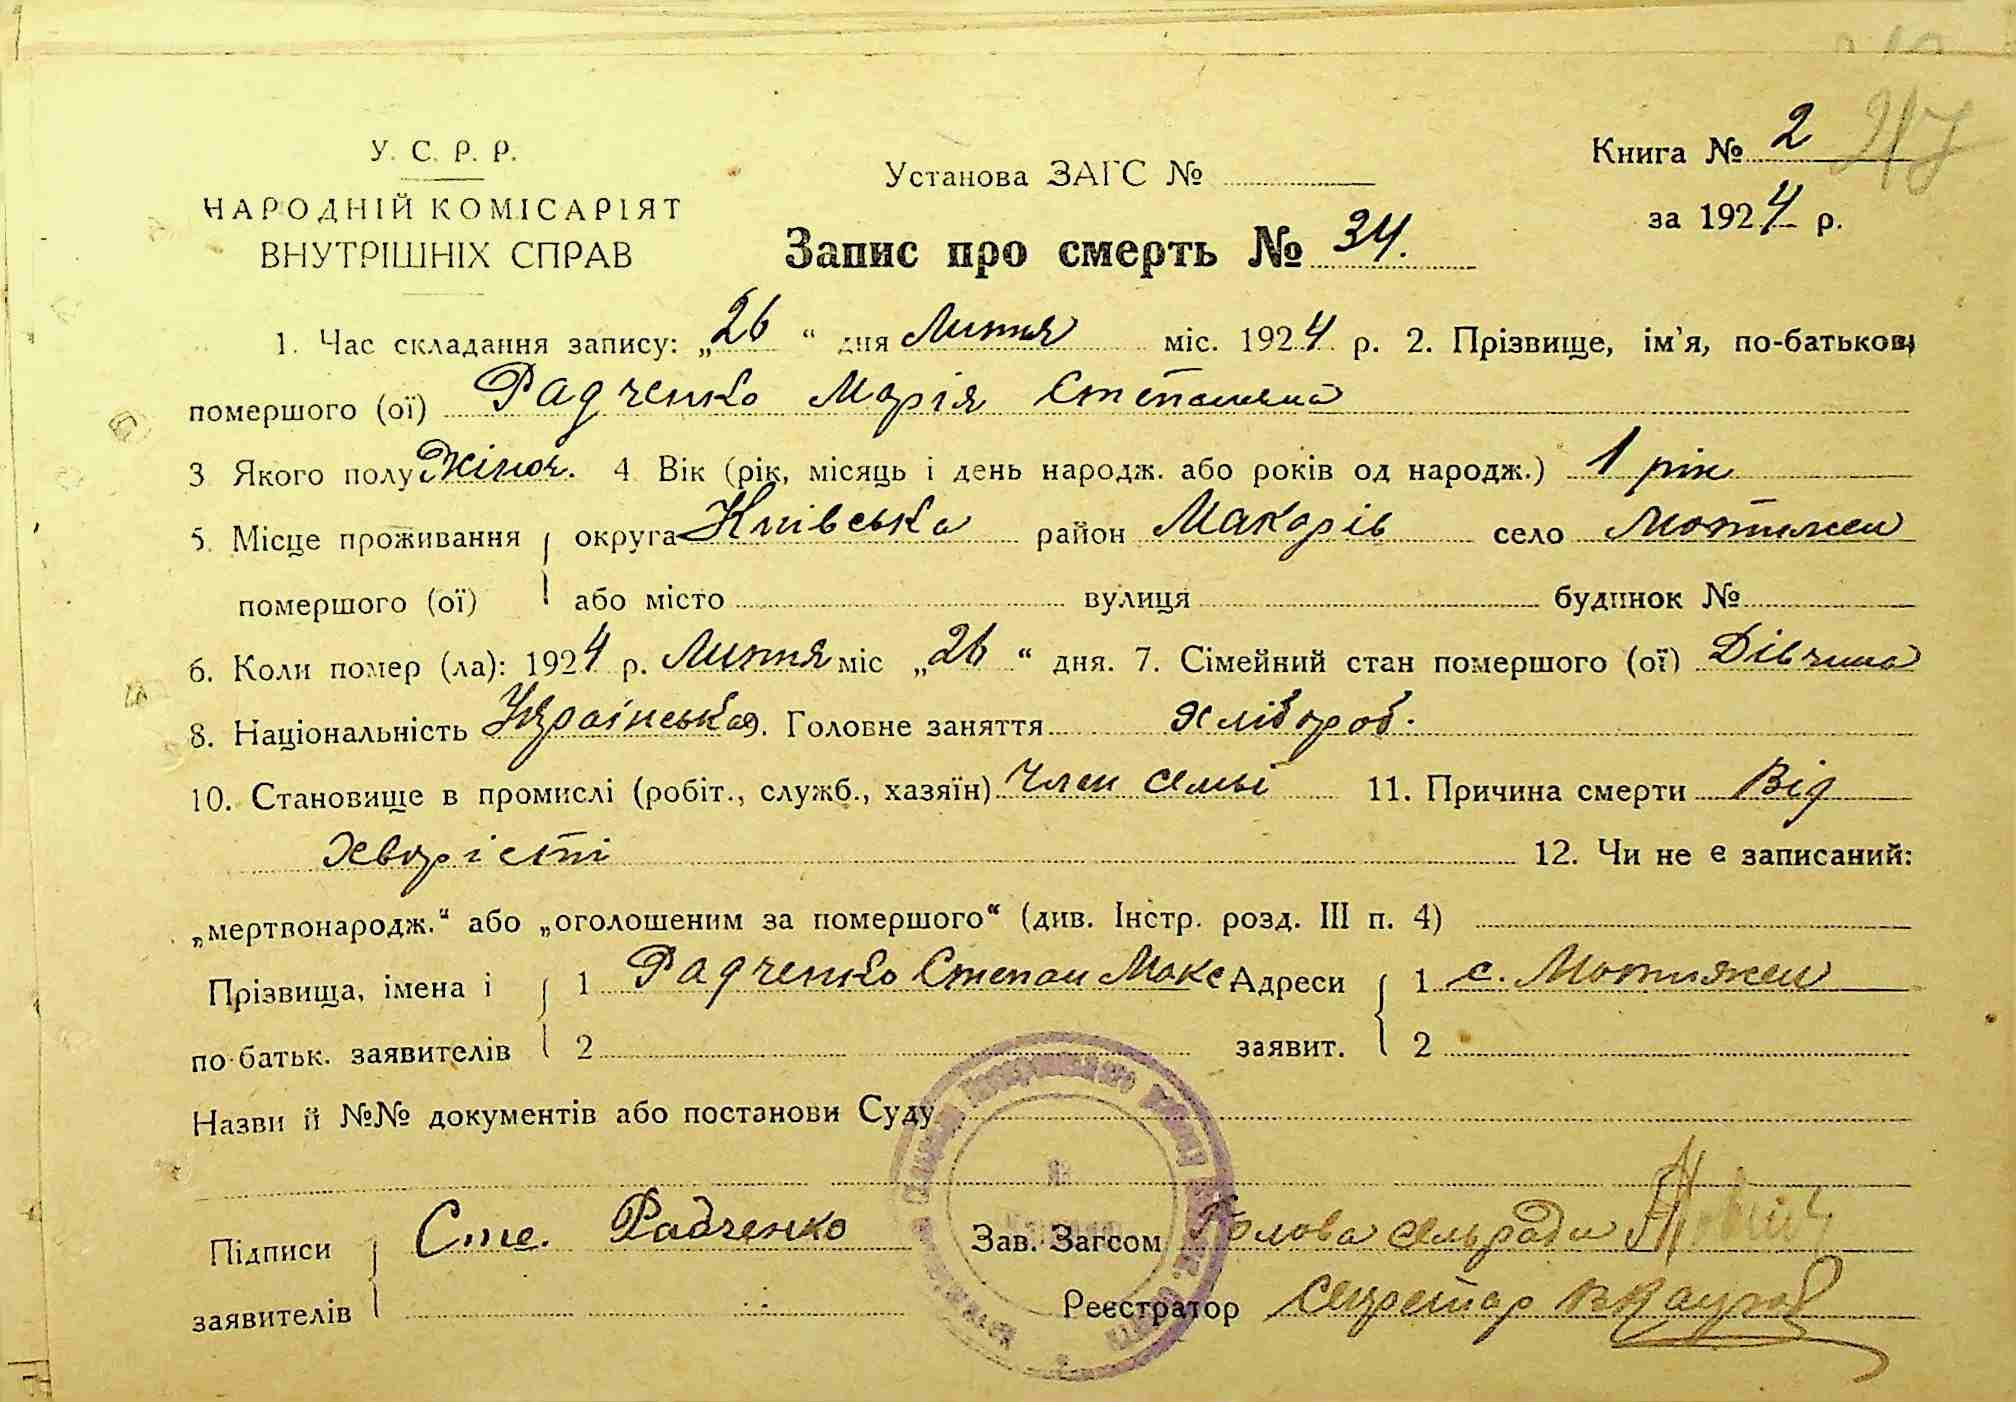 У. С. Р. Р.
НАРОДНІЙ КОМІСАРІЯТ
ВНУТРІШНІХ СПРАВ
Установа ЗАГС №
Запис про смерть № 34.
Книга № 2
за 1924 р.
1. Час складання запису: „26“ дня Липня міс. 1924 р. 2. Прізвище, ім'я, по-батькови
помершого (ої) Радченко Марія Степановна
3 Якого полу Жіноч. 4 Вік (рік, місяць і день народж. або років од народж.) 1 рік
5. Місце проживання округа Київська район Макарів село Мотижен
помершого (ої) або місто вулиця будинок №
6. Коли помер (ла): 1924 р. Липня міс „26“ дня. 7. Сімейний стан помершого (ої) Дівчина
8. Національність Українська 9. Головне заняття Хлібороб.
10. Становище в промислі (робіт., служб., хазяїн) Член семьі 11. Причина смерти Від
хворісті 12. Чи не є записаний:
„мертвонародж.“ або „оголошеним за помершого“ (див. Інстр. розд. III п. 4)
Прізвища, імена і 1 Радченко Степан Макс Адреси 1 с. Мотижен
по-батьк. заявителів 2 заявит. 2
Назви й №№ документів або постанови Суду
Підписи Сте. Радченко Зав. Загсом Голова сельради
заявителів Реєстратор Секретар